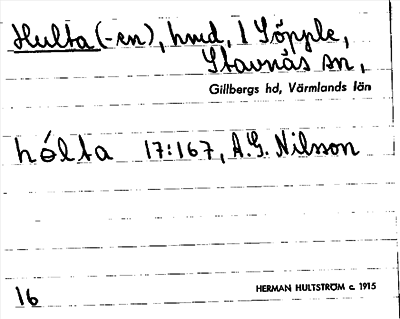 Hulta (-en), hmd, 1 Söpple,
Stavnäs sn,
Gillbergs hd, Värmlands län
hólta 17:167, A.G. Nilsson
16 HERMAN HULTSTRÖM c. 1915